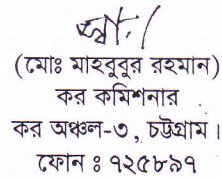 স্বাঃ/
(মোঃ মাহবুবুর রহমান)
কর কমিশনার
কর অঞ্চল-৩, চট্টগ্রাম।
ফোন ঃ ৭২৫৮৯৭